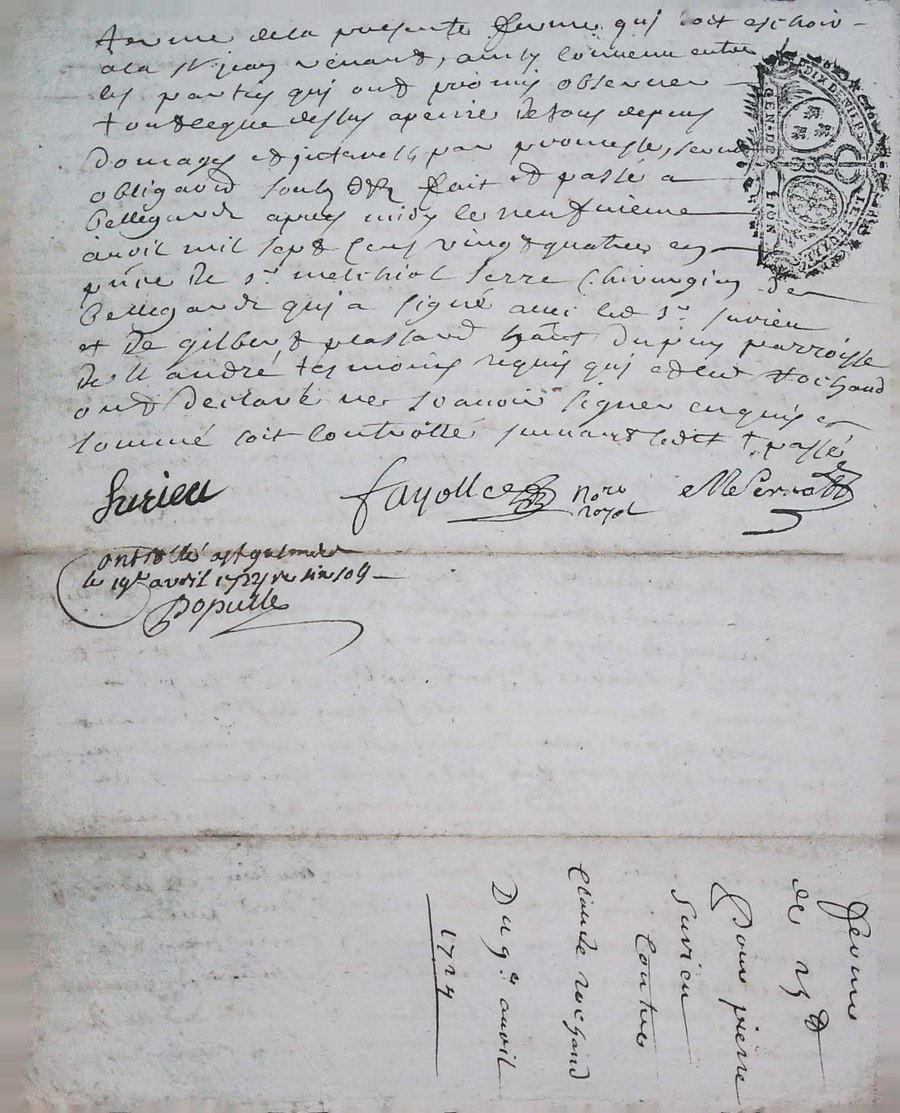 terme de la presente ferme qui doit eschoir
a la st jean venant, ainsy convenu entre
les parties qui ont promis observer
tout ce que dessus a peine de tous depens
domages et par promesse, serm
obligaon soubz &a fait et passé a
bellegarde apres midy le neufvieme
avvil mil sept cens vingt quatre en
pnce de sr melchiol serre chirurgien de
bellegarde qui a signé avec led sr surieu
et de gilbert plassard habt du puy parroisse
de st andré tesmoins requis qui et led rochand
ont declaré ne scavoir signer enquis et
sommé soit controllé suivant ledit t passé
Surieu
fayolle nore royal
MeSerre
ontrollé a st galmier
le 19e avril 1724 re six 10s
Populle
ferme
de 25 #
Pour pierre
surieu
contre
Claude rochand
Du 9e avvil
1724
GEN. DE LION
DIX DENIERS LE FEUILLE